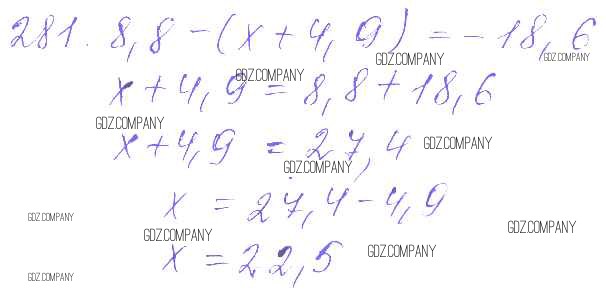 281. 8,8 - (x + 4,9) = - 18,6
GDZ.COMPANY GDZ.COMPANY GDZ.COMPANY
x + 4,9 = 8,8 + 18,6
GDZ.COMPANY GDZ.COMPANY
x + 4,9 = 27,4
GDZ.COMPANY
x = 27,4 - 4,9
GDZ.COMPANY GDZ.COMPANY GDZ.COMPANY
x = 22,5
GDZ.COMPANY GDZ.COMPANY